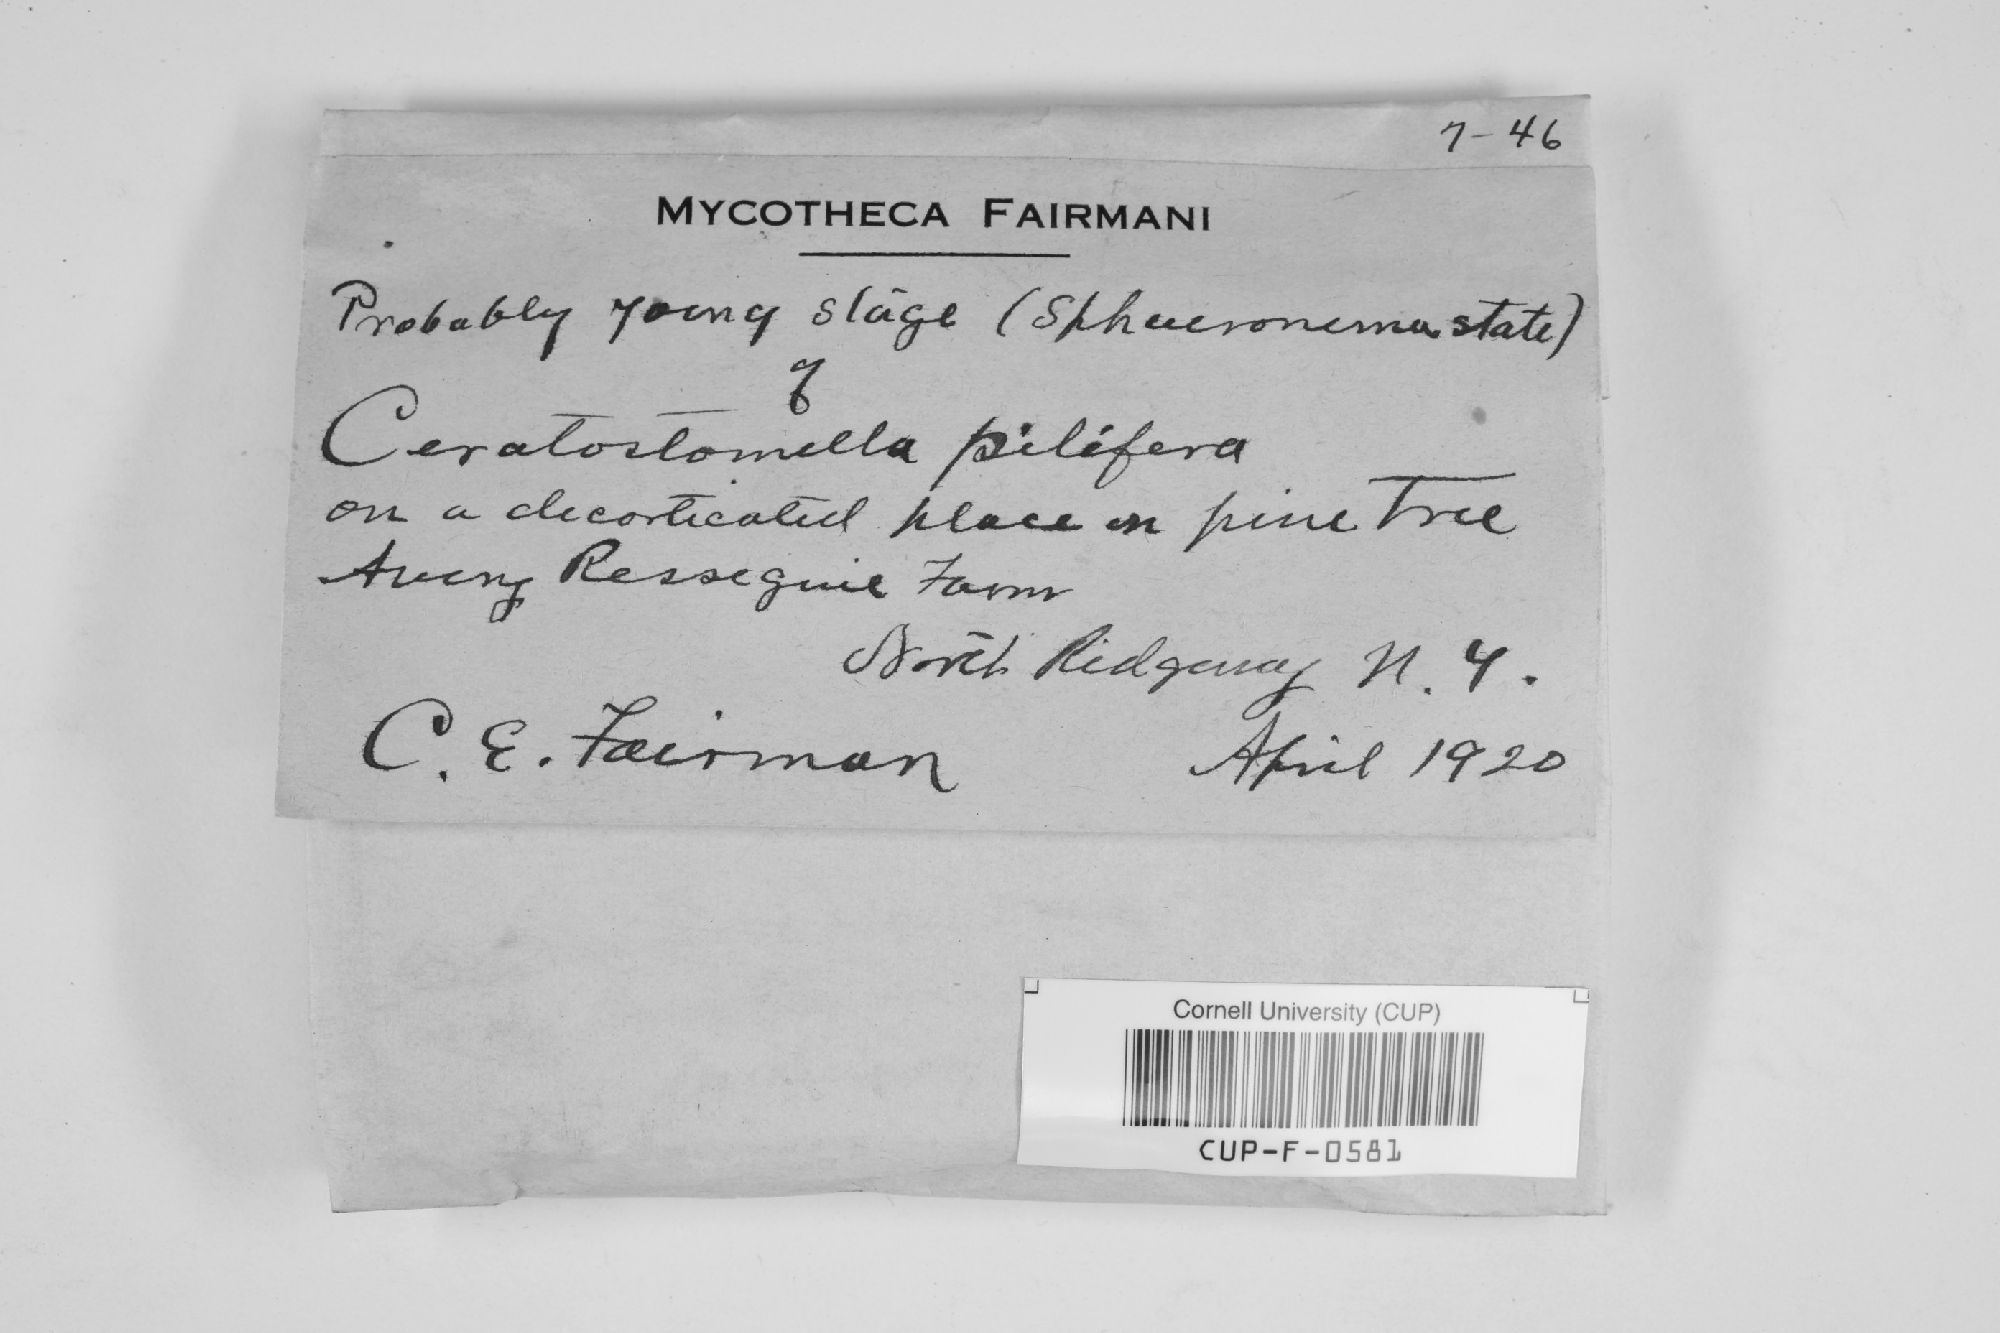 7-46
MYCOTHECA FAIRMANI
Probably young stage (Sphaeronema state)
of
Ceratostomella pilifera
on a decorticated place on pine Tree
Resseguie Farm
North Ridgeway N.Y.
C. E. Fairman April 1920
Cornell University (CUP)
CUP-F-0581